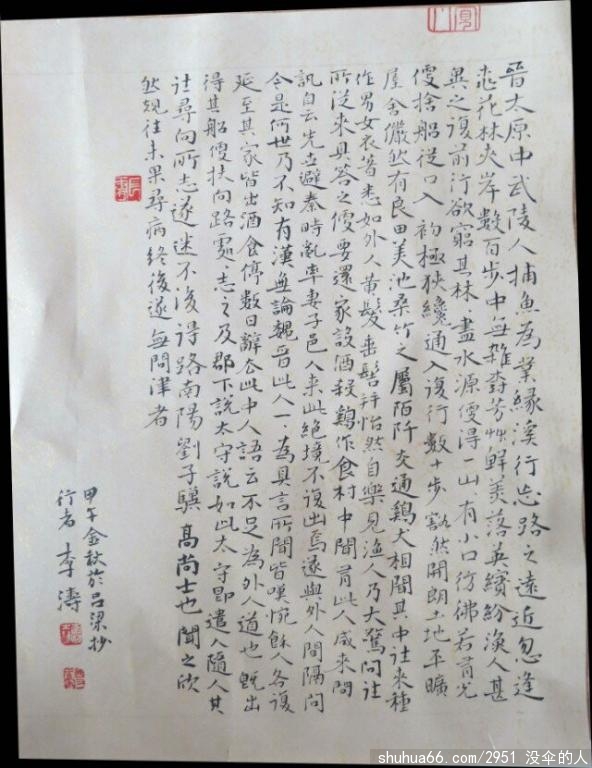 晉太原中武陵人捕魚為業緣溪行忘路之遠近忽逢
桃花林夾岸數百步中無雜樹芳草鮮美落英繽紛漁人甚
異之復前行欲窮其林、盡水源便得一山有小口彷彿若有光
便捨船從口入初極狹纔通人復行數十步豁然開朗土地平曠
屋舍儼然有良田美池桑竹之屬陌阡交通鷄犬相聞其中往來種
作男女衣著悉如外人黃髮垂髫并怡然自樂見漁人乃大驚問
所從來具答之便要還家設酒殺鷄作食村中聞有此人咸來問
訊自云先世避秦時亂率妻子邑人來此絕境不復出焉遂與外人間隔問
今是何世乃不知有漢無論魏晉此人一、為具言所聞皆嘆惋餘人各復
延至其家皆出酒食停數日辭去此中人語云不足為外人道也既出
得其船便扶向路處、志之及郡下說太守說如此太守即遣人隨其
往尋向所志遂迷不復得路南陽劉子驥高尚士也聞之欣
然規往未果尋病終後遂無問津者
甲午金秋於呂梁抄
行者李濤
shuhua66.com/2951 没伞的人